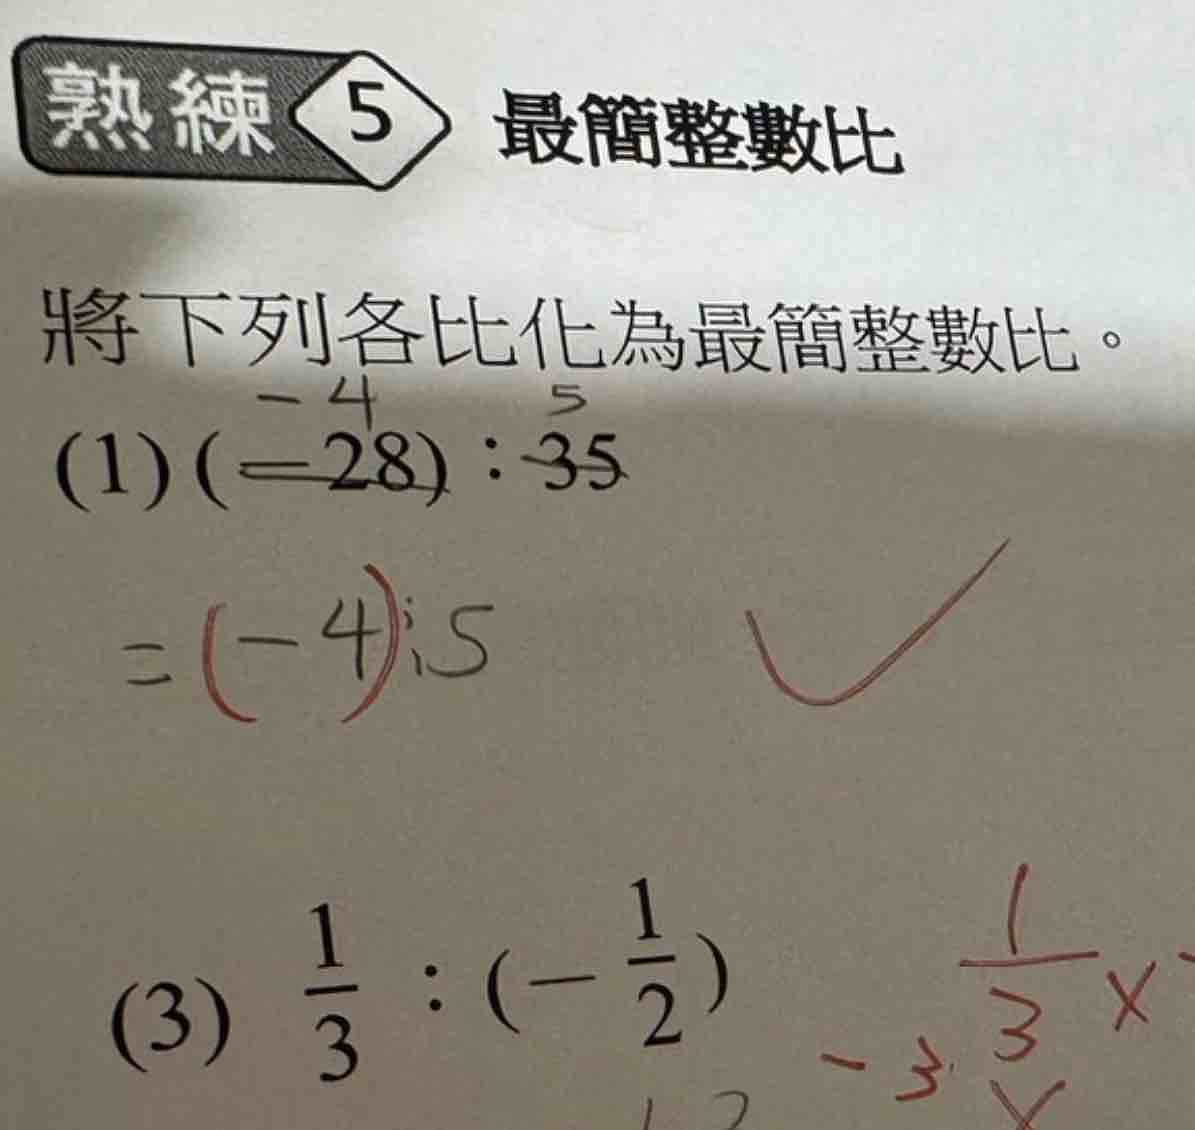 熟練 5 最簡整數比
將下列各比化為最簡整數比。
-4 5
(1) (-28) : 35
= (-4) : 5
(3) 1/3 : (-1/2)
1/3 ×
-3